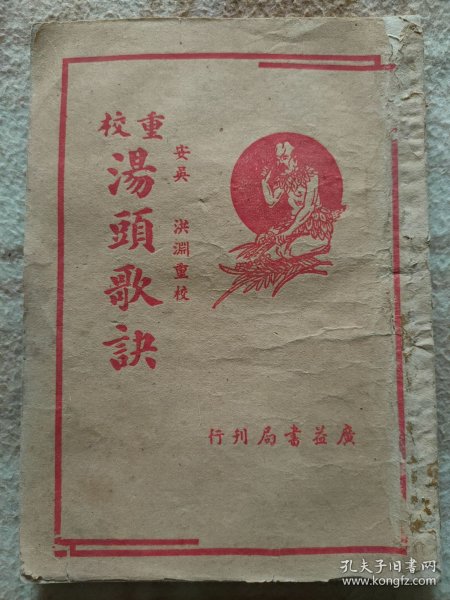 重校
湯頭歌訣
安吳 洪淵重校
廣益書局刊行
孔夫子旧书网
www.kongfz.com